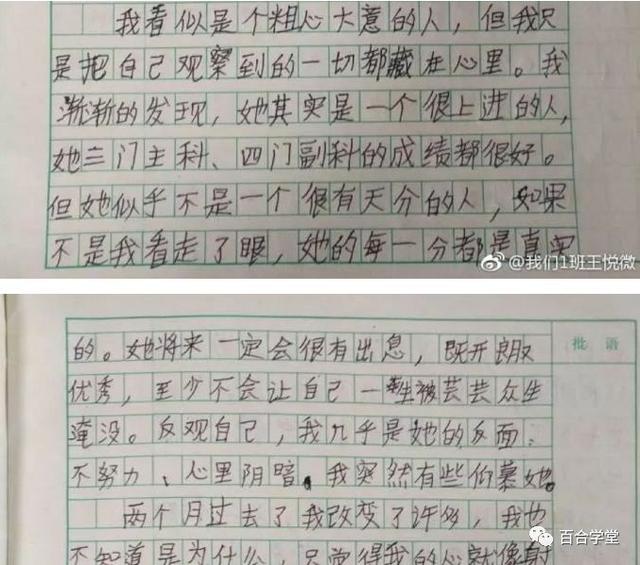 我看似是个粗心大意的人，但我只
是把自己观察到的一切都藏在心里。我
渐渐的发现，她其实是一个很上进的人，
她三门主科、四门副科的成绩都很好。
但她似乎不是一个很有天分的人，如果
不是我看走了眼，她的每一分都是真实
@我们1班王悦微
的。她将来一定会很有出息，既开朗又
批 语
优秀，至少不会让自己一生被芸芸众生
淹没。反观自己，我几乎是她的反面：
不努力、心里阴暗。我突然有些仰慕她。
两个月过去了我改变了许多，我也
百合学堂
不知道是为什么，只觉得我的心就像射